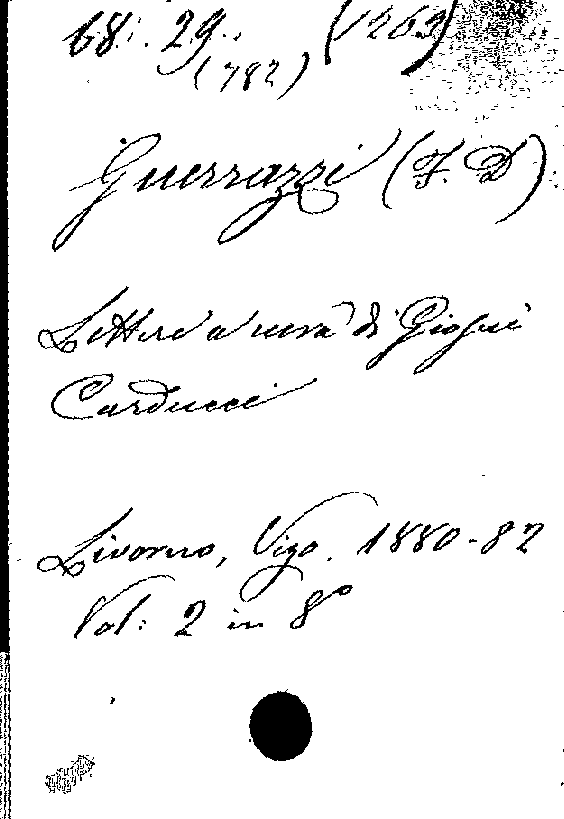 68: 29. (1263)
(782)
Guerrazzi (F. D)
Lettere a cura di Giosuè
Carducci
Livorno, Vigo. 1880-82
Vol: 2 in 8º